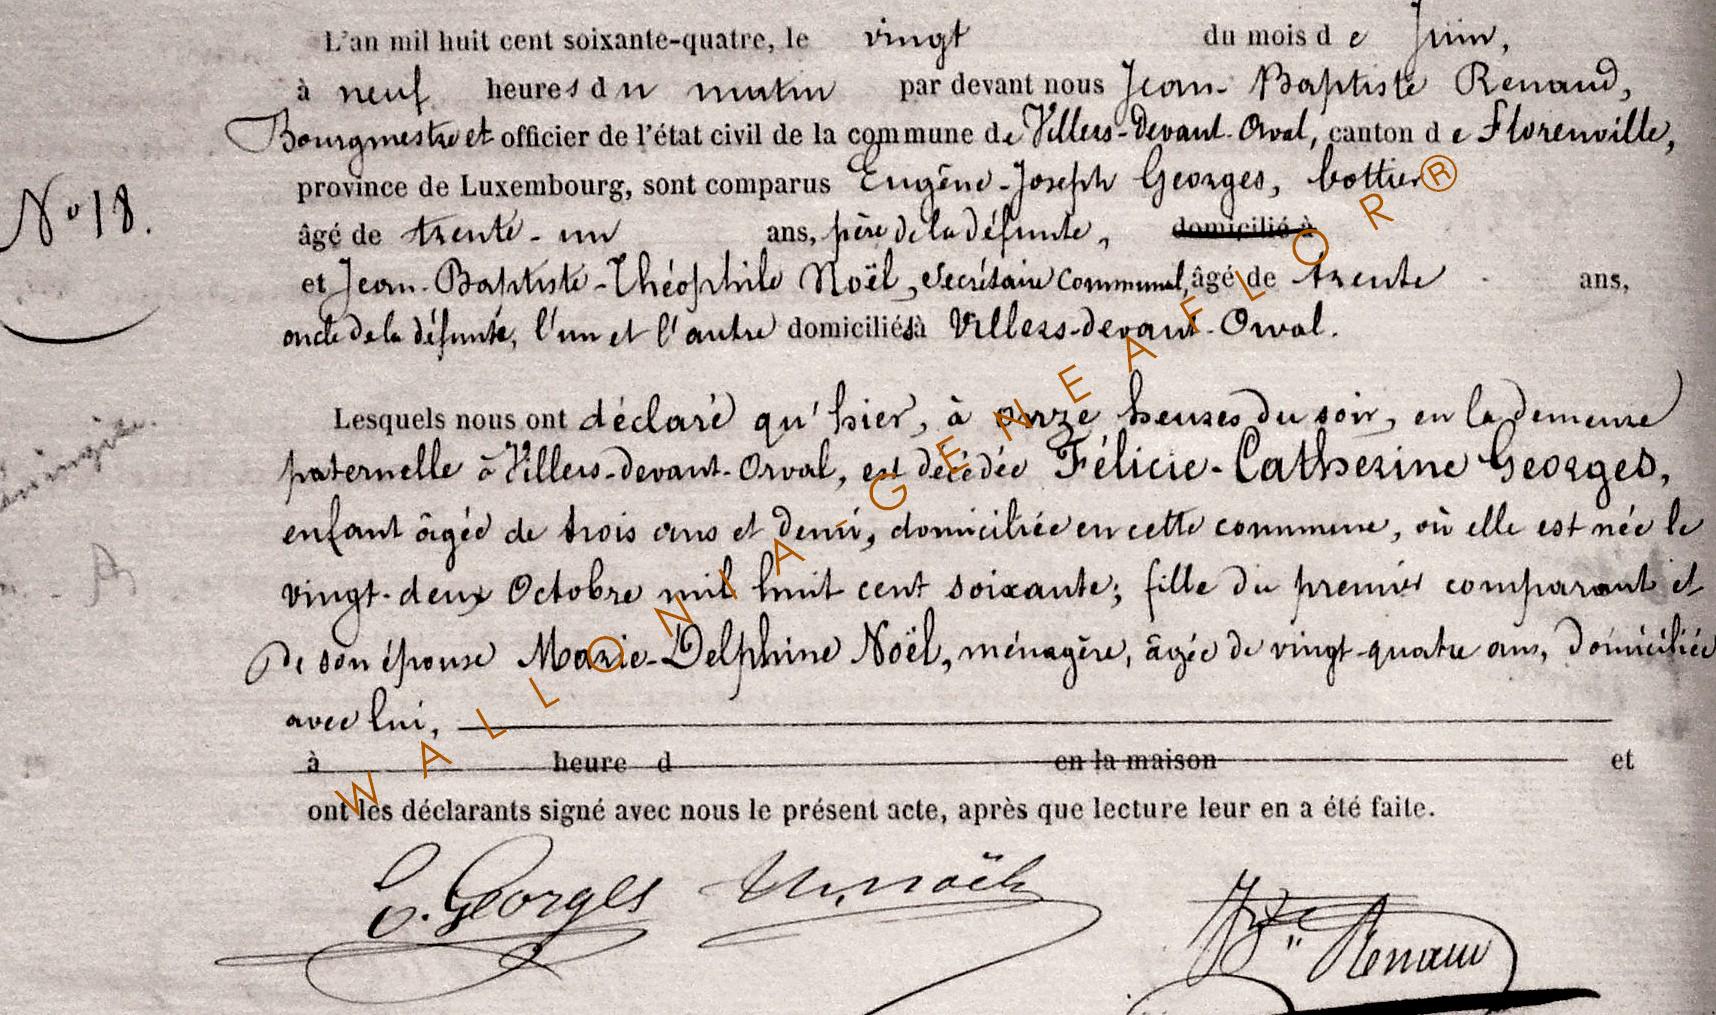 L'an mil huit cent soixante-quatre, le vingt du mois de Juin,
à neuf heures du matin par devant nous Jean-Baptiste Renaud,
Bourgmestre et officier de l'état civil de la commune de Villers-devant-Orval, canton de Florenville,
province de Luxembourg, sont comparus Eugène-Joseph Georges, bottier
N° 18.
âgé de trente-un ans, père de la défunte, domicilié à
et Jean-Baptiste-Théophile Noël, secrétaire communal, âgé de trente ans,
oncle de la défunte, l'un et l'autre domiciliés à Villers-devant-Orval.
Lesquels nous ont déclaré qu'hier, à onze heures du soir, en la demeure
paternelle à Villers-devant-Orval, est décédée Félicie-Catherine Georges,
enfant âgée de trois ans et demi, domiciliée en cette commune, où elle est née le
vingt-deux Octobre mil huit cent soixante; fille du premier comparant et
de son épouse Marie-Delphine Noël, ménagère, âgée de vingt-quatre ans, domiciliée
avec lui,
à heure d en la maison et
ont les déclarants signé avec nous le présent acte, après que lecture leur en a été faite.
E. Georges Th. Noël
JBte Renaud
WALLONIA-GENEAFLOR®